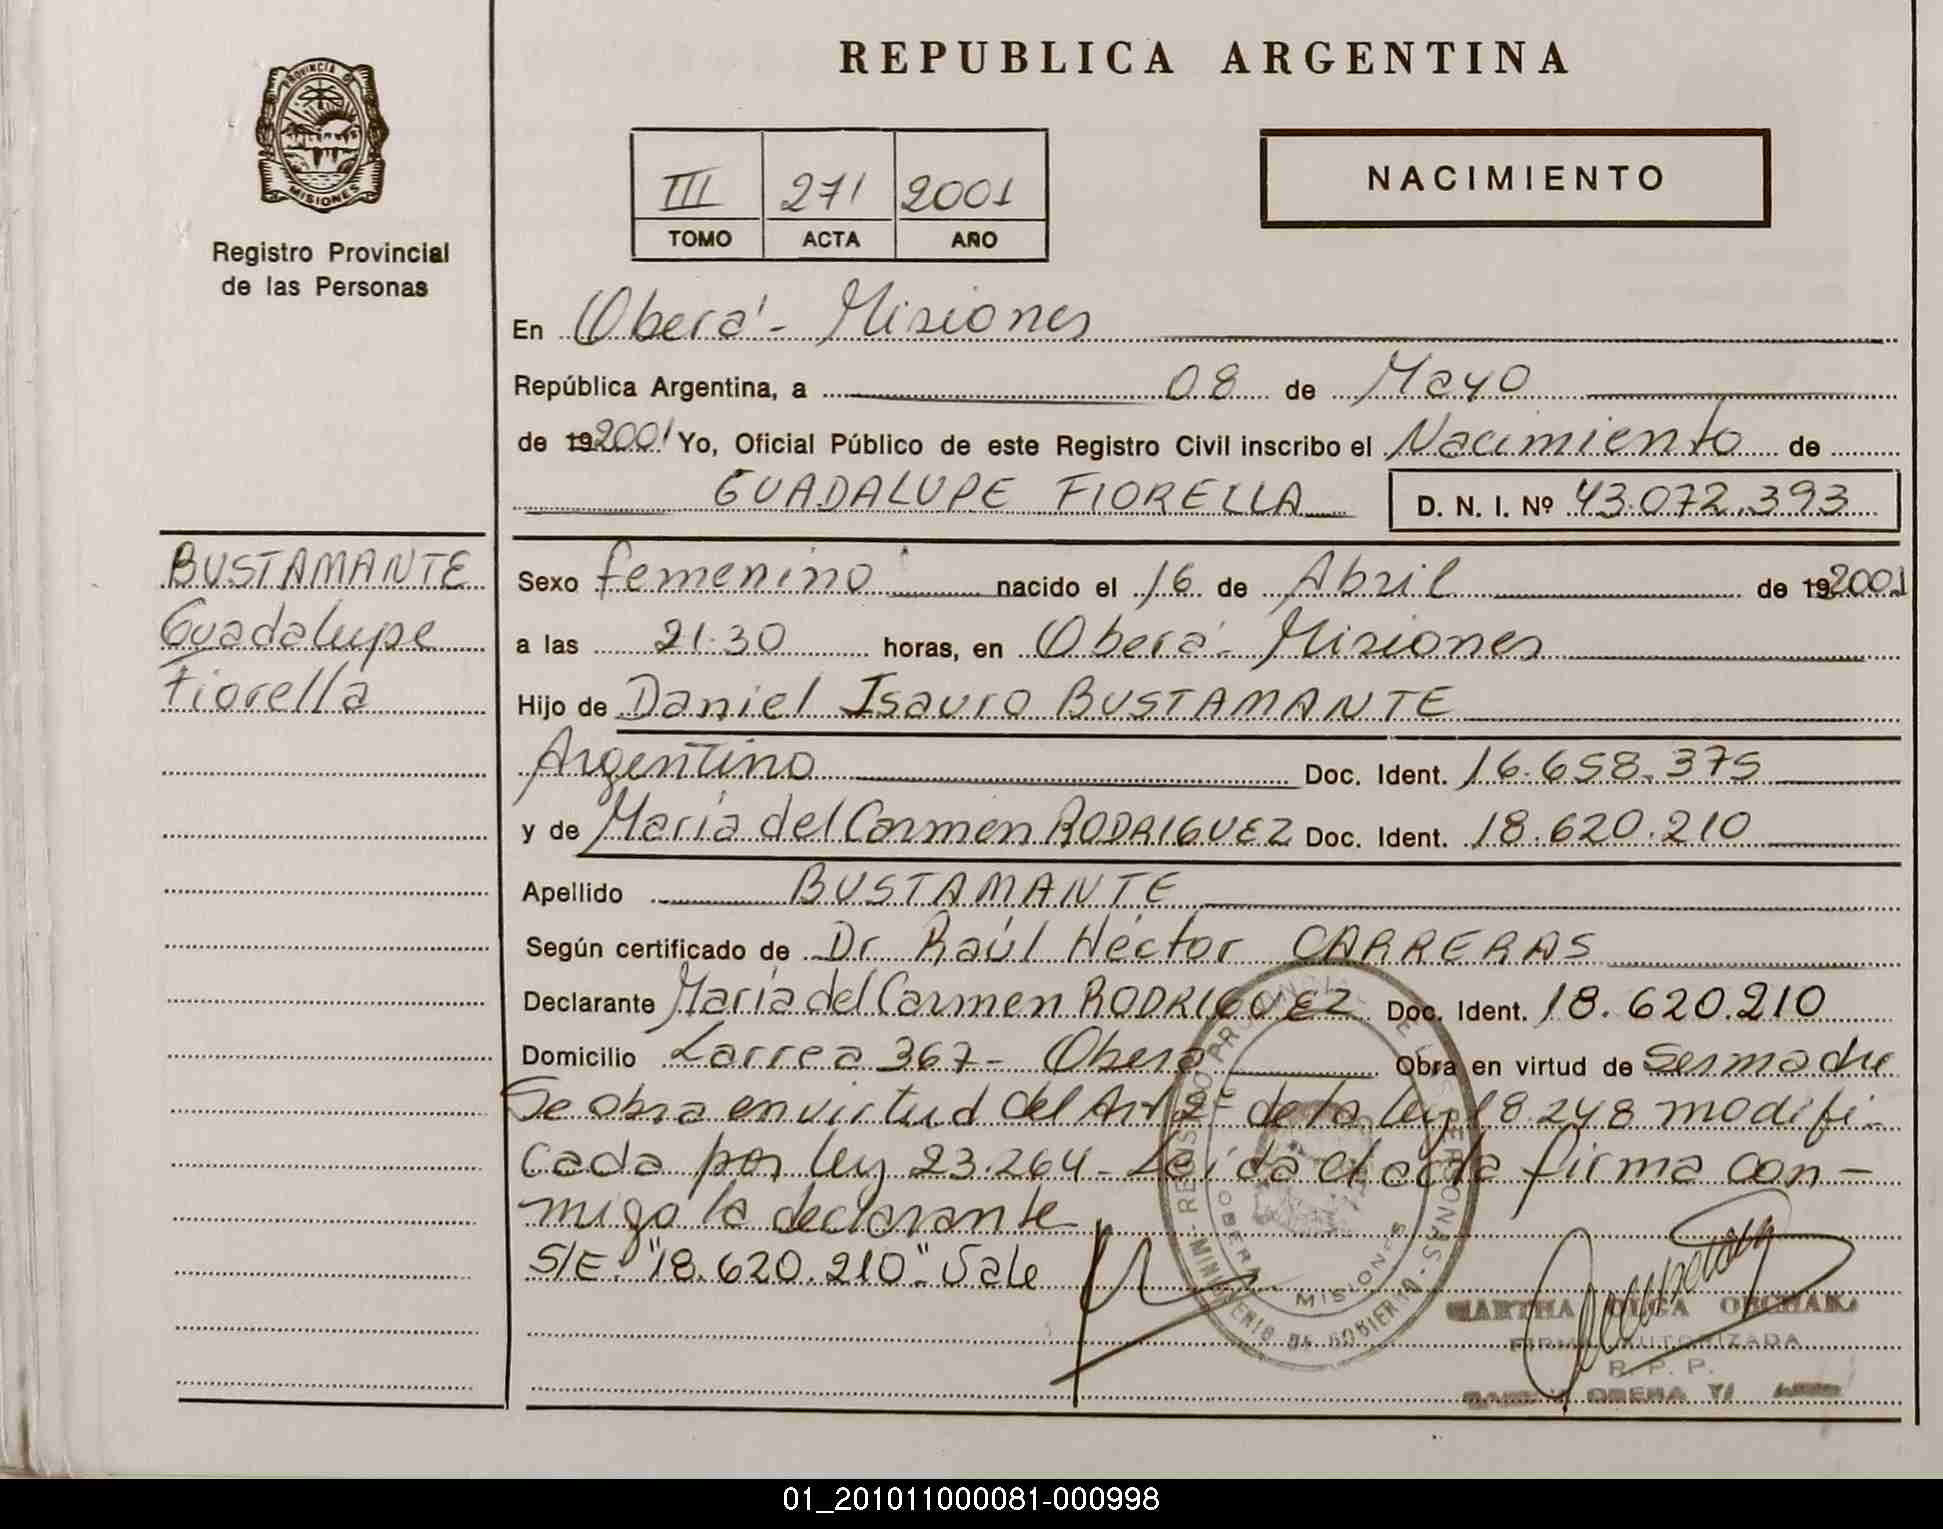 REPUBLICA ARGENTINA
PROVINCIA DE
MISIONES
Registro Provincial
de las Personas
III 271 2001
TOMO ACTA AÑO
NACIMIENTO
En Oberá - Misiones
República Argentina, a 08 de Mayo
de 19 2001 Yo, Oficial Público de este Registro Civil inscribo el Nacimiento de
GUADALUPE FIORELLA D. N. I. Nº 43.072.393
BUSTAMANTE
Guadalupe
Fiorella
Sexo femenino nacido el 16 de Abril de 19 2001
a las 21.30 horas, en Oberá - Misiones
Hijo de Daniel Isauro BUSTAMANTE
Argentino Doc. Ident. 16.658.375
y de María del Carmen RODRIGUEZ Doc. Ident. 18.620.210
Apellido BUSTAMANTE
Según certificado de Dr. Raúl Héctor CARRERAS
Declarante María del Carmen RODRIGUEZ Doc. Ident. 18.620.210
Domicilio Larrea 367 - Oberá Obra en virtud de Ser madre
Se obra en virtud del Art 2º de la ley 18.248 modifi-
cada por ley 23.264 - Leída el acta firma con-
migo la declarante
S/E: "18.620.210" Vale
REGISTRO PROVINCIAL DE LAS PERSONAS
MINISTERIO DE GOBIERNO
OBERA - MISIONES
MARTHA OLGA
FIRMA AUTORIZADA
R. P. P.
OBERA
01_201011000081-000998